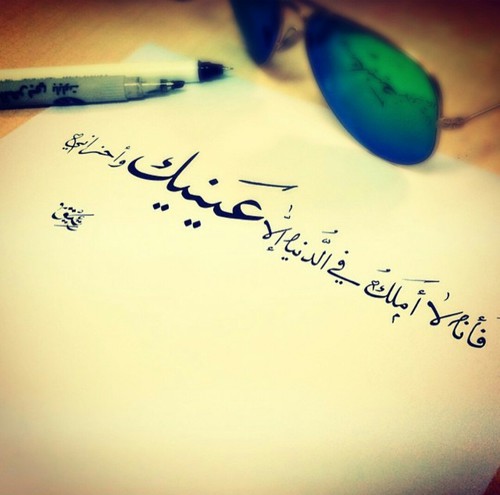 فأنا لا أملكُ في الدُّنيا إلّا عينيك وأحزاني